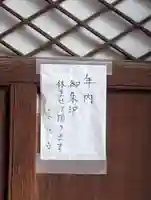 年内
御朱印
休ませて頂きます